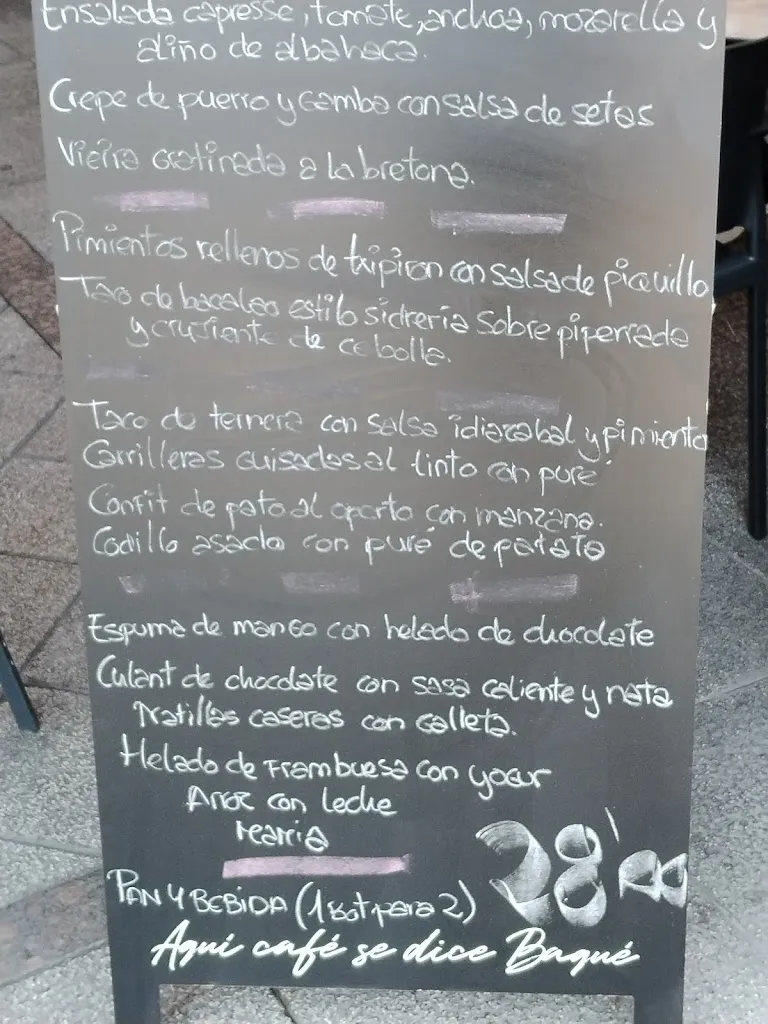 Ensalada capresse, tomate, anchoa, mozarella y
aliño de albahaca.
Crepe de puerro y Gamba con salsa de setas
Vieira gratinada a la bretona.
Pimientos rellenos de txipiron con salsa de piquillo
Taco de bacalao estilo sidreria sobre piperrada
y crujiente de cebolla.
Taco de ternera con salsa idiazabal y pimiento
Carrilleras guisadas al tinto con puré
Confit de pato al oporto con manzana.
Codillo asado con puré de patata
Espuma de mango con helado de chocolate
Culant de chocolate con sasa caliente y nata
Natillas caseras con galleta.
Helado de Frambuesa con yogur
Arroz con leche
PAN Y BEBIDA (1 bot para 2)
28'
Aquí café se dice Baqué